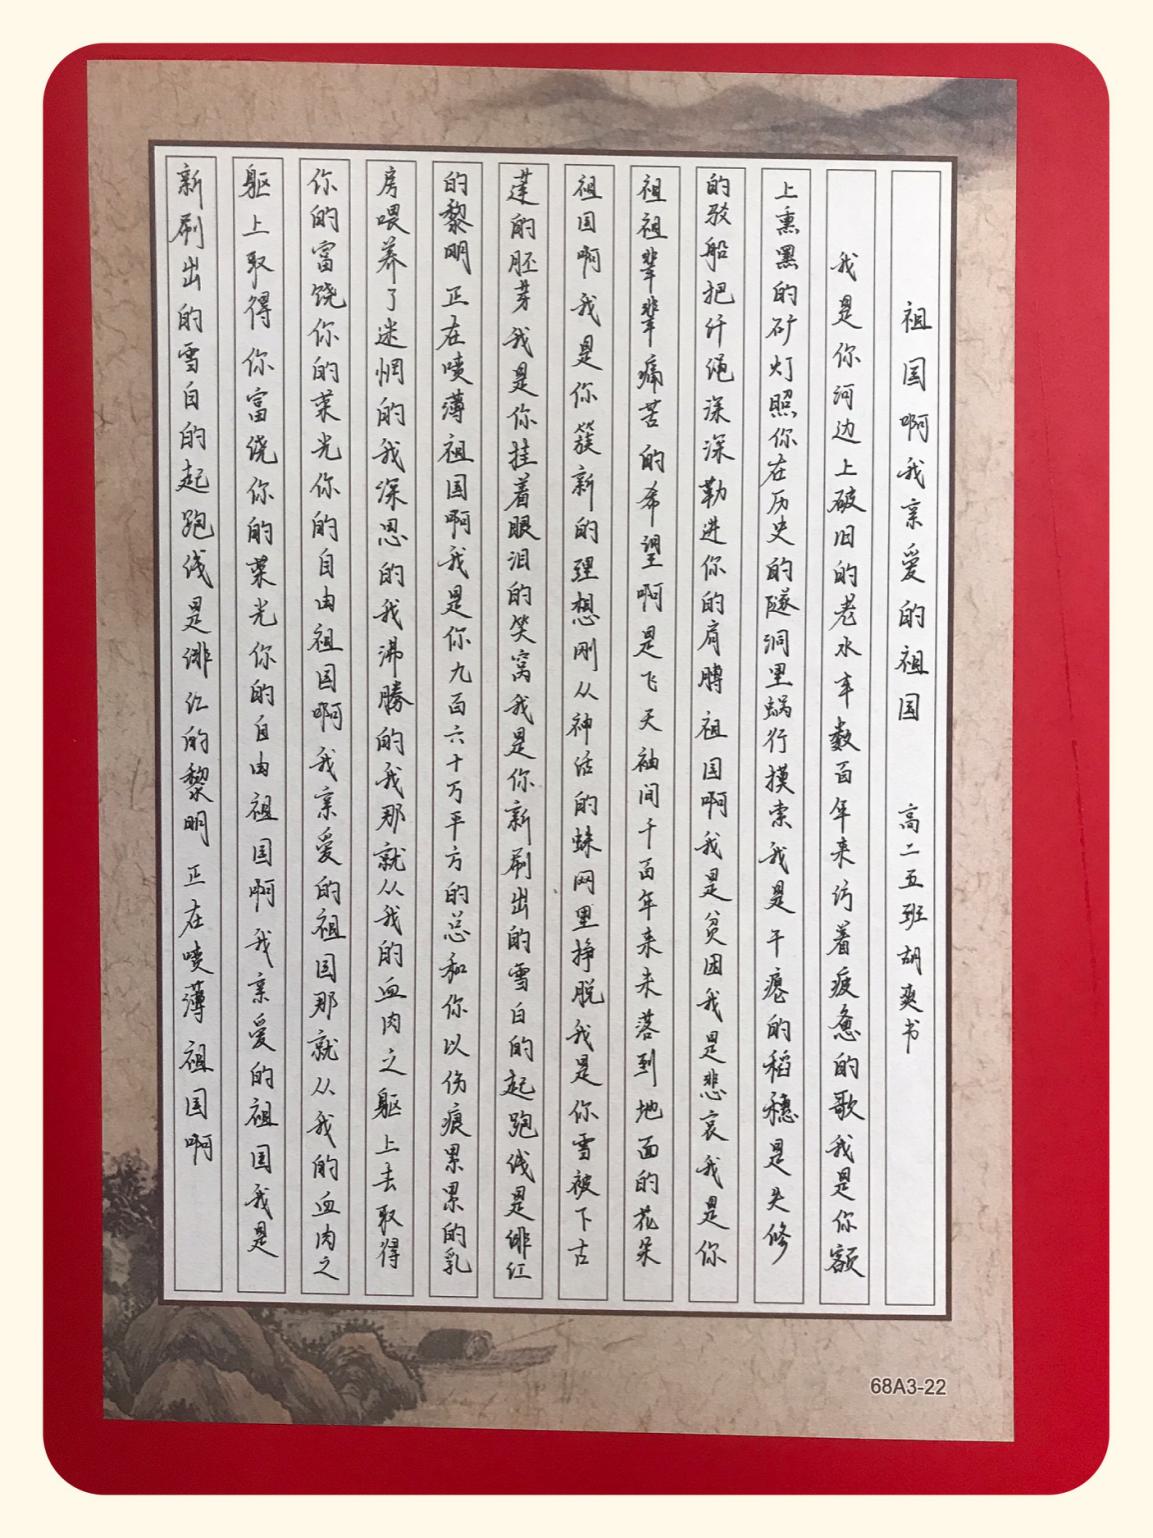 祖国啊我亲爱的祖国 高二五班胡爽书
我是你河边上破旧的老水车数百年来纺着疲惫的歌我是你额
上熏黑的矿灯照你在历史的隧洞里蜗行摸索我是干瘪的稻穗是失修
的驳船把纤绳深深勒进你的肩膊 祖国啊我是贫困我是悲哀我是你
祖祖辈辈痛苦的希望啊是飞天袖间千百年来未落到地面的花朵
祖国啊我是你簇新的理想刚从神话的蛛网里挣脱我是你雪被下古
莲的胚芽我是你挂着眼泪的笑窝我是你新刷出的雪白的起跑线是绯红
的黎明正在喷薄祖国啊我是你九百六十万平方的总和你以伤痕累累的乳
房喂养了迷惘的我深思的我沸腾的我那就从我的血肉之躯上去取得
你的富饶你的荣光你的自由祖国啊我亲爱的祖国那就从我的血肉之
躯上取得你富饶你的荣光你的自由祖国啊我亲爱的祖国我是
新刷出的雪白的起跑线是绯红的黎明正在喷薄祖国啊
68A3-22